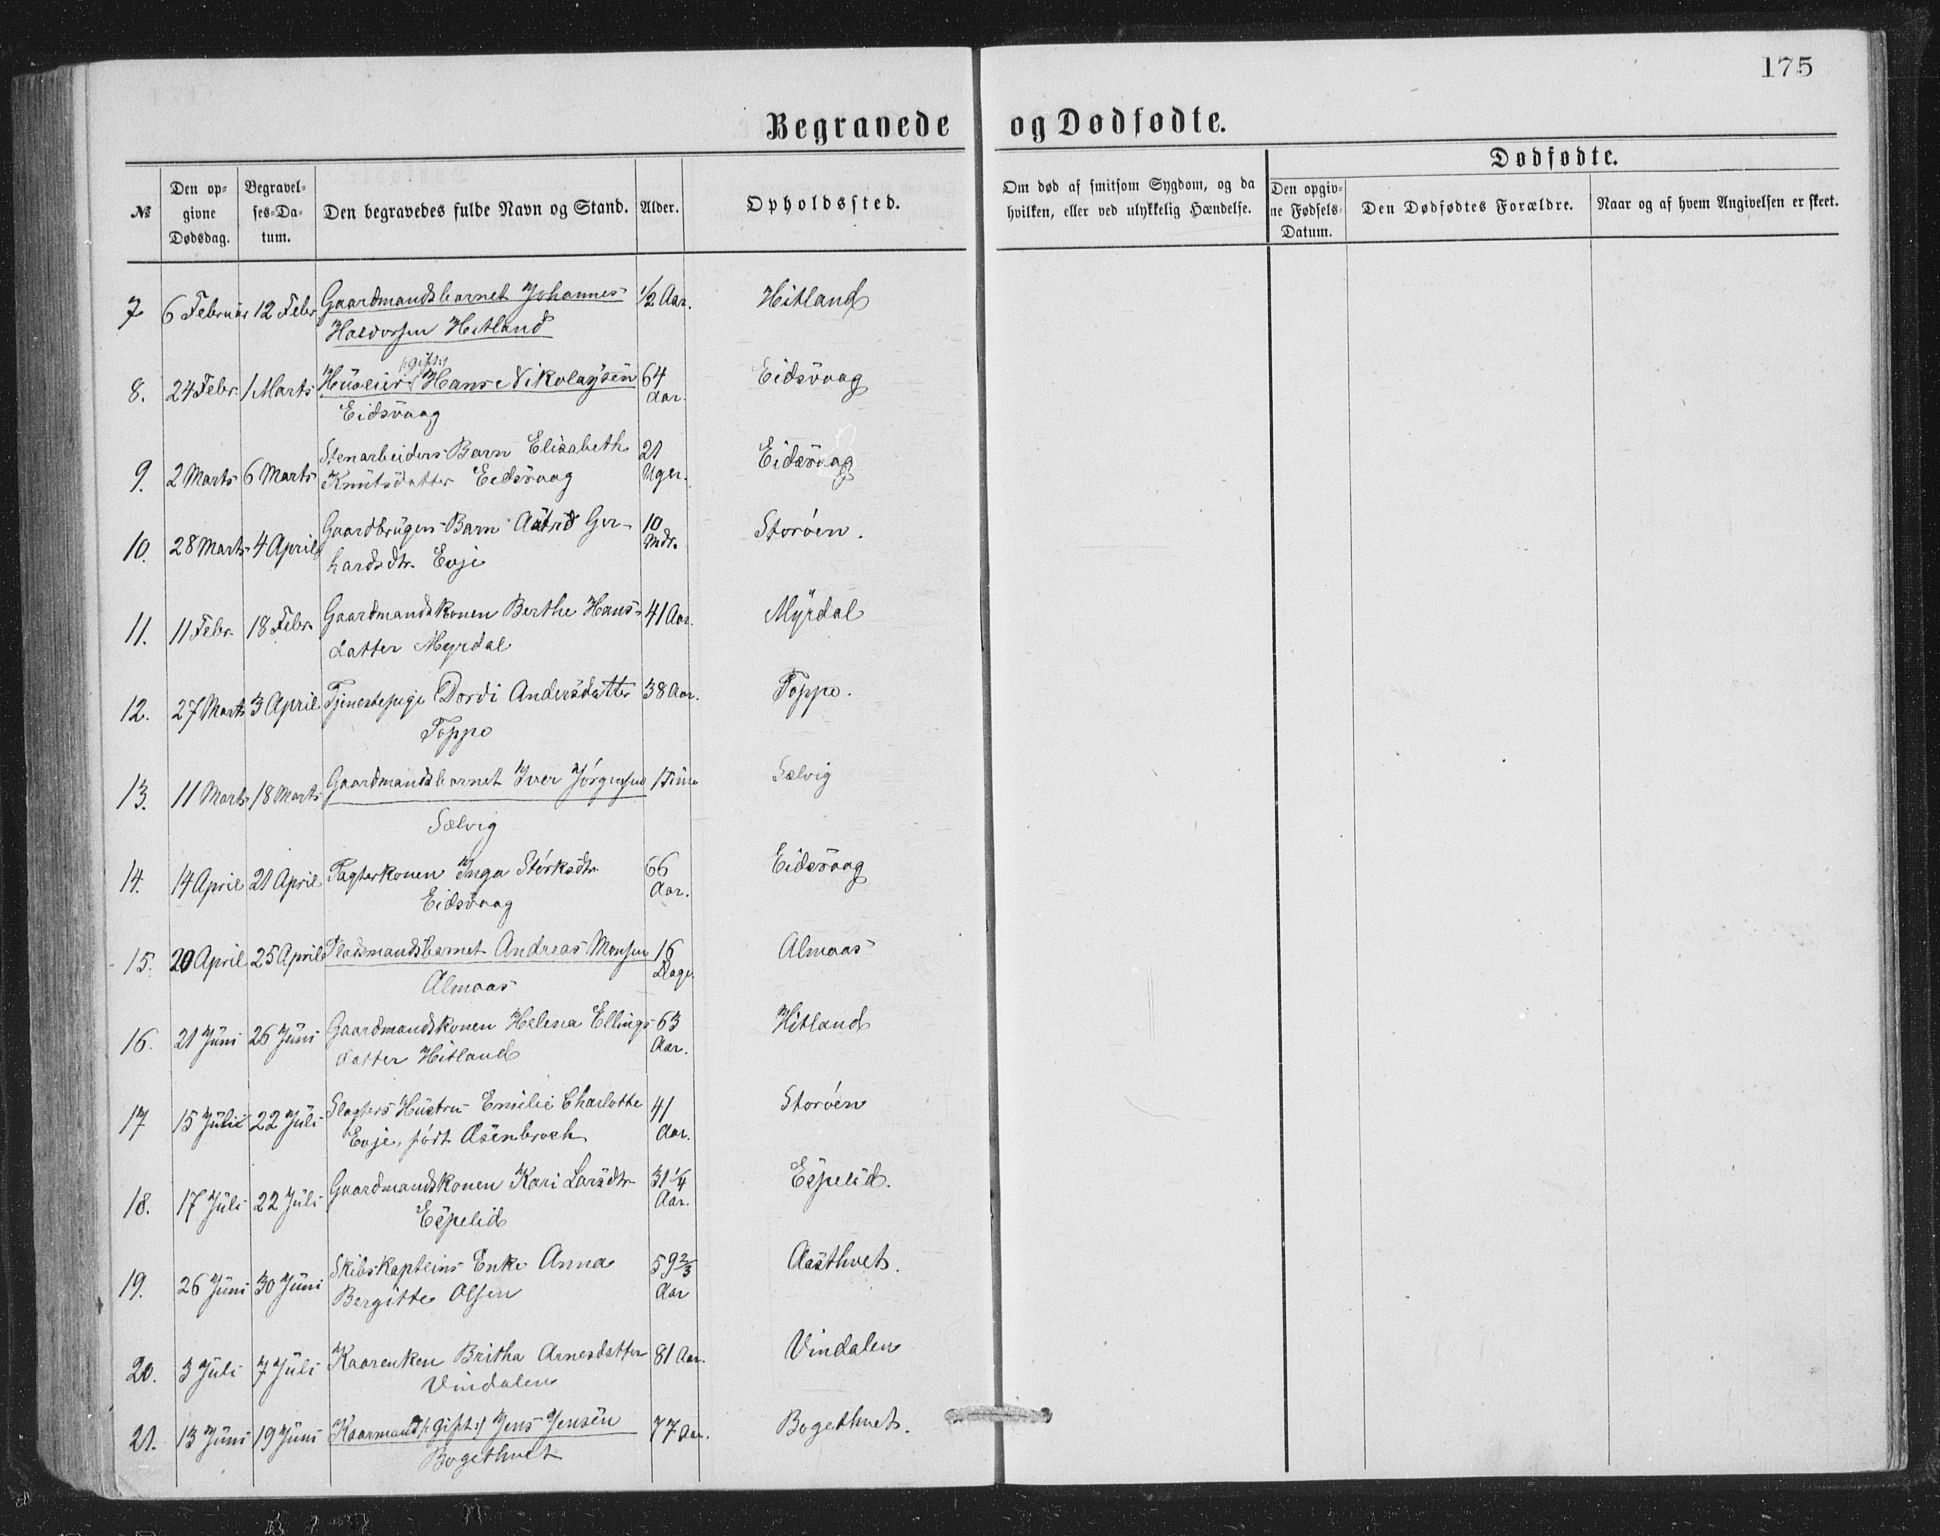 175
Begravede og Dødfødte.
Dødfødte.
№ Den opgivne Dødsdag. Begravelses-Datum. Den begravedes fulde Navn og Stand. Alder. Opholdssted. Om død af smitsom Sygdom, og da hvilken, eller ved ulykkelig Hændelse. Den opgivne Fødsels-Datum. Den Dødfødtes Forældre. Naar og af hvem Angivelsen er skeet.
7 6 Februar 12 Febr Gaardmandsbarnet Johannes 1/2 Aar. Hitland
Haldorsen Hitland
8. 24 Febr. 1 Marts Huseier (gift) Hans Nikolaysen 64 Aar. Eidsvaag
Eidsvaag
9. 2 Marts 6 Marts Stenarbeiders Barn Elisabeth 21 Uger. Eidsvaag
Knutsdatter Eidsvaag
10. 28 Marts 4 April Gaardbrugers Barn Astrid Ger- 10 Mdr. Storøen.
hardsdtr. Evje
11. 11 Febr. 18 Febr. Gaardmandskonen Berthe Hans- 41 Aar. Myrdal
datter Myrdal
12. 27 Marts 3 April Tjenestepige Dordi Andersdatter 38 Aar. Toppe.
Toppe
13. 11 Marts 18 Marts Gaardmandsbarnet Iver Jørgensen 1 Time Sælvig
Sælvig
14. 14 April 21 April Pagterkonen Inga Størksdtr 66 Aar. Eidsvaag
Eidsvaag
15. 20 April 25 April Pladsmandsbarnet Andreas Monsen 16 Dage. Almaas
Almaas
16. 21 Juni 26 Juni Gaardmandskonen Helena Ellings- 63 Aar. Hitland
datter Hitland
17 15 Juli 22 Juli Slagters Hustru Emilie Charlotte 41 Aar. Storøen
Evje, født Asenbroch
18. 17 Juli 22 Juli Gaardmandskonen Kari Larsdtr 31 1/4 Aar. Espelid.
Espelid
19. 26 Juni 30 Juni Skibskapteins Enke Anna 59 2/3 Aar Aasthvet.
Bergitte Olsen
20. 3 Juli 7 Juli Kaarenken Britha Arnesdatter 81 Aar. Vindalen
Vindalen
21. 13 Juni 19 Juni Kaarmand (gift) Jens Jensen 77 Aar. Bogethvet.
Bogethvet